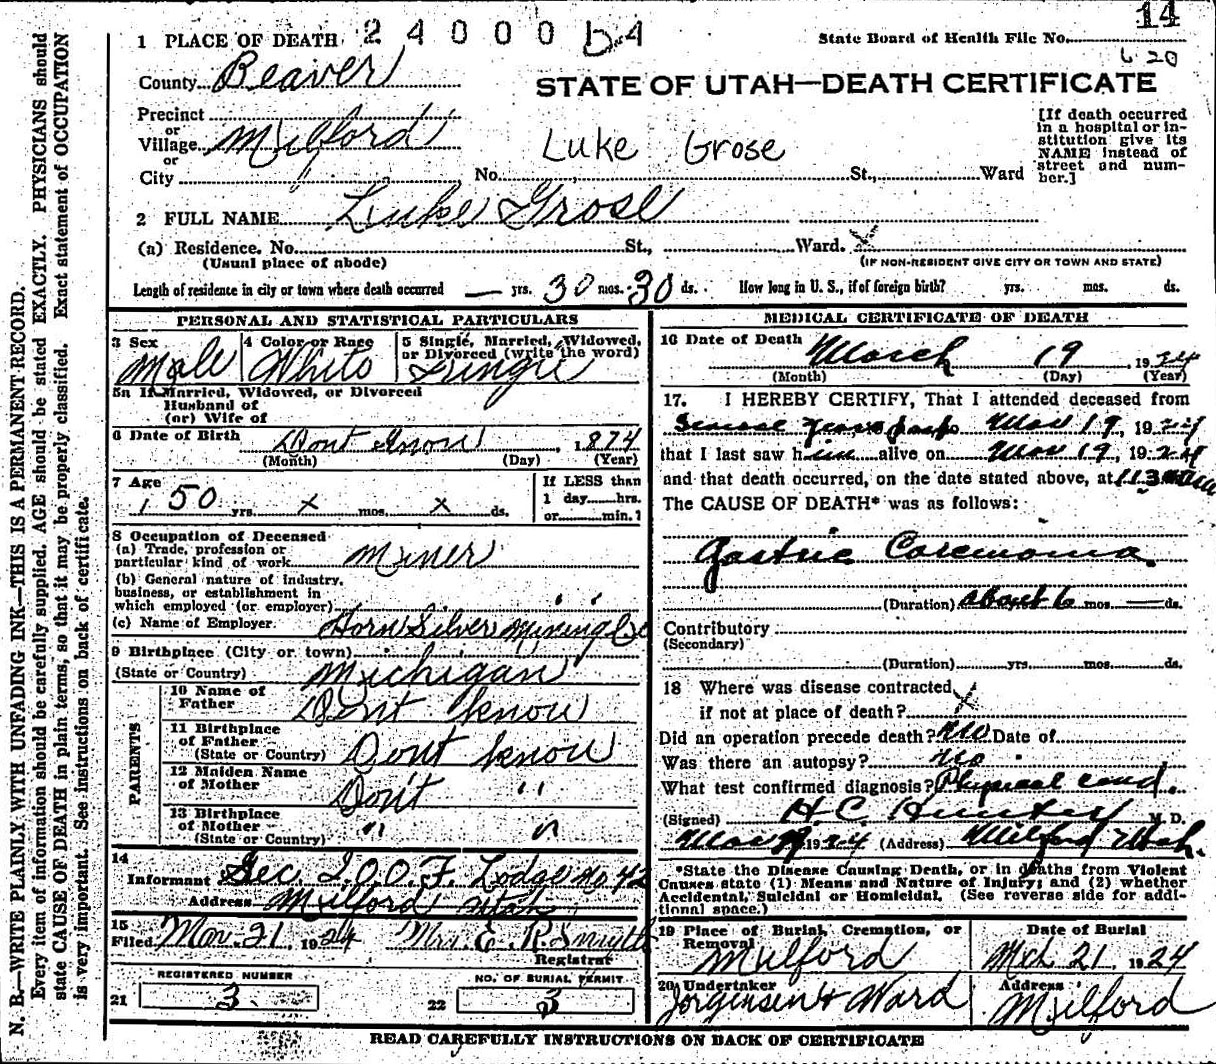 14
1 PLACE OF DEATH 24000 64
State Board of Health File No.
620
County Beaver
STATE OF UTAH—DEATH CERTIFICATE
Precinct
or
Village Milford
or
City No. St., Ward
Luke Grose
[If death occurred
in a hospital or in-
stitution give its
NAME instead of
street and num-
ber.]
2 FULL NAME Luke Grose
(a) Residence. No. St., Ward. X
(Usual place of abode)
(IF NON-RESIDENT GIVE CITY OR TOWN AND STATE)
Length of residence in city or town where death occurred — yrs. 30 mos. 30 ds. How long in U. S., if of foreign birth? yrs. mos. ds.
PERSONAL AND STATISTICAL PARTICULARS
3 Sex Male
4 Color or Race White
5 Single, Married, Widowed,
or Divorced (write the word)
Single
5a If Married, Widowed, or Divorced
Husband of
(or) Wife of
6 Date of Birth Dont Know 1874
(Month) (Day) (Year)
7 Age 50 yrs. x mos. x ds.
If LESS than
1 day hrs.
or min.?
8 Occupation of Deceased
(a) Trade, profession or
particular kind of work Miner
(b) General nature of industry,
business, or establishment in
which employed (or employer) " "
(c) Name of Employer. Horn Silver Mining Co
9 Birthplace (City or town)
(State or Country) Michigan
PARENTS
10 Name of
Father Dont know
11 Birthplace
of Father
(State or Country) Dont know
12 Maiden Name
of Mother Don't "
13 Birthplace
of Mother
(State or Country) " "
14
Informant Sec I.O.O.F. Lodge No 42
Address Milford Utah
15
Filed Mar. 21 1924 Mrs. E. R. Smyth
Registrar
REGISTERED NUMBER
21 3
NO. OF BURIAL PERMIT
22 3
MEDICAL CERTIFICATE OF DEATH
16 Date of Death March 19 1924
(Month) (Day) (Year)
17. I HEREBY CERTIFY, That I attended deceased from
Several years past Mar 19, 1924
that I last saw him alive on Mar 19, 1924
and that death occurred, on the date stated above, at 1130 am
The CAUSE OF DEATH* was as follows:
Gastric Carcinoma
(Duration) about 6 mos — ds.
Contributory
(Secondary)
(Duration) yrs. mos. ds.
18 Where was disease contracted
if not at place of death? X
Did an operation precede death? No Date of
Was there an autopsy? no
What test confirmed diagnosis? Physical cond.
(Signed) H.C. Hunter M. D.
Mar 1924 (Address) Milford Utah.
*State the Disease Causing Death, or in deaths from Violent
Causes state (1) Means and Nature of Injury; and (2) whether
Accidental, Suicidal or Homicidal. (See reverse side for addi-
tional space.)
19 Place of Burial, Cremation, or
Removal Milford
Date of Burial
Mch 21 1924
20 Undertaker
Jorgensen & Ward
Address
Milford
READ CAREFULLY INSTRUCTIONS ON BACK OF CERTIFICATE
N. B.—WRITE PLAINLY WITH UNFADING INK—THIS IS A PERMANENT RECORD.
Every item of information should be carefully supplied. AGE should be stated EXACTLY. PHYSICIANS should
state CAUSE OF DEATH in plain terms, so that it may be properly classified. Exact statement of OCCUPATION
is very important. See instructions on back of certificate.